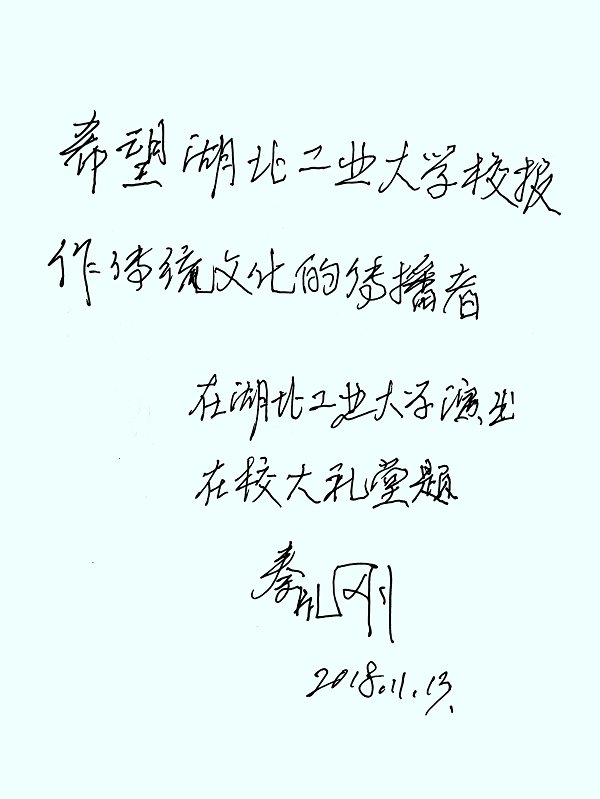 希望湖北工业大学校报
作传统文化的传播者
在湖北工业大学演出
在校大礼堂题
2018.11.13.